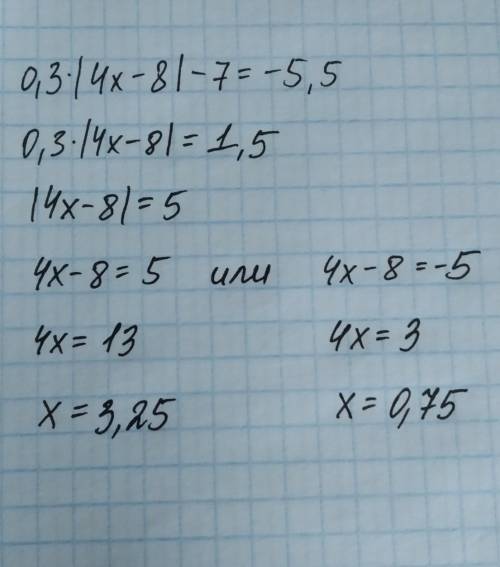 0,3·|4x-8|-7=-5,5
0,3·|4x-8|=1,5
|4x-8|=5
4x-8=5 или 4x-8=-5
4x=13 4x=3
x=3,25 x=0,75